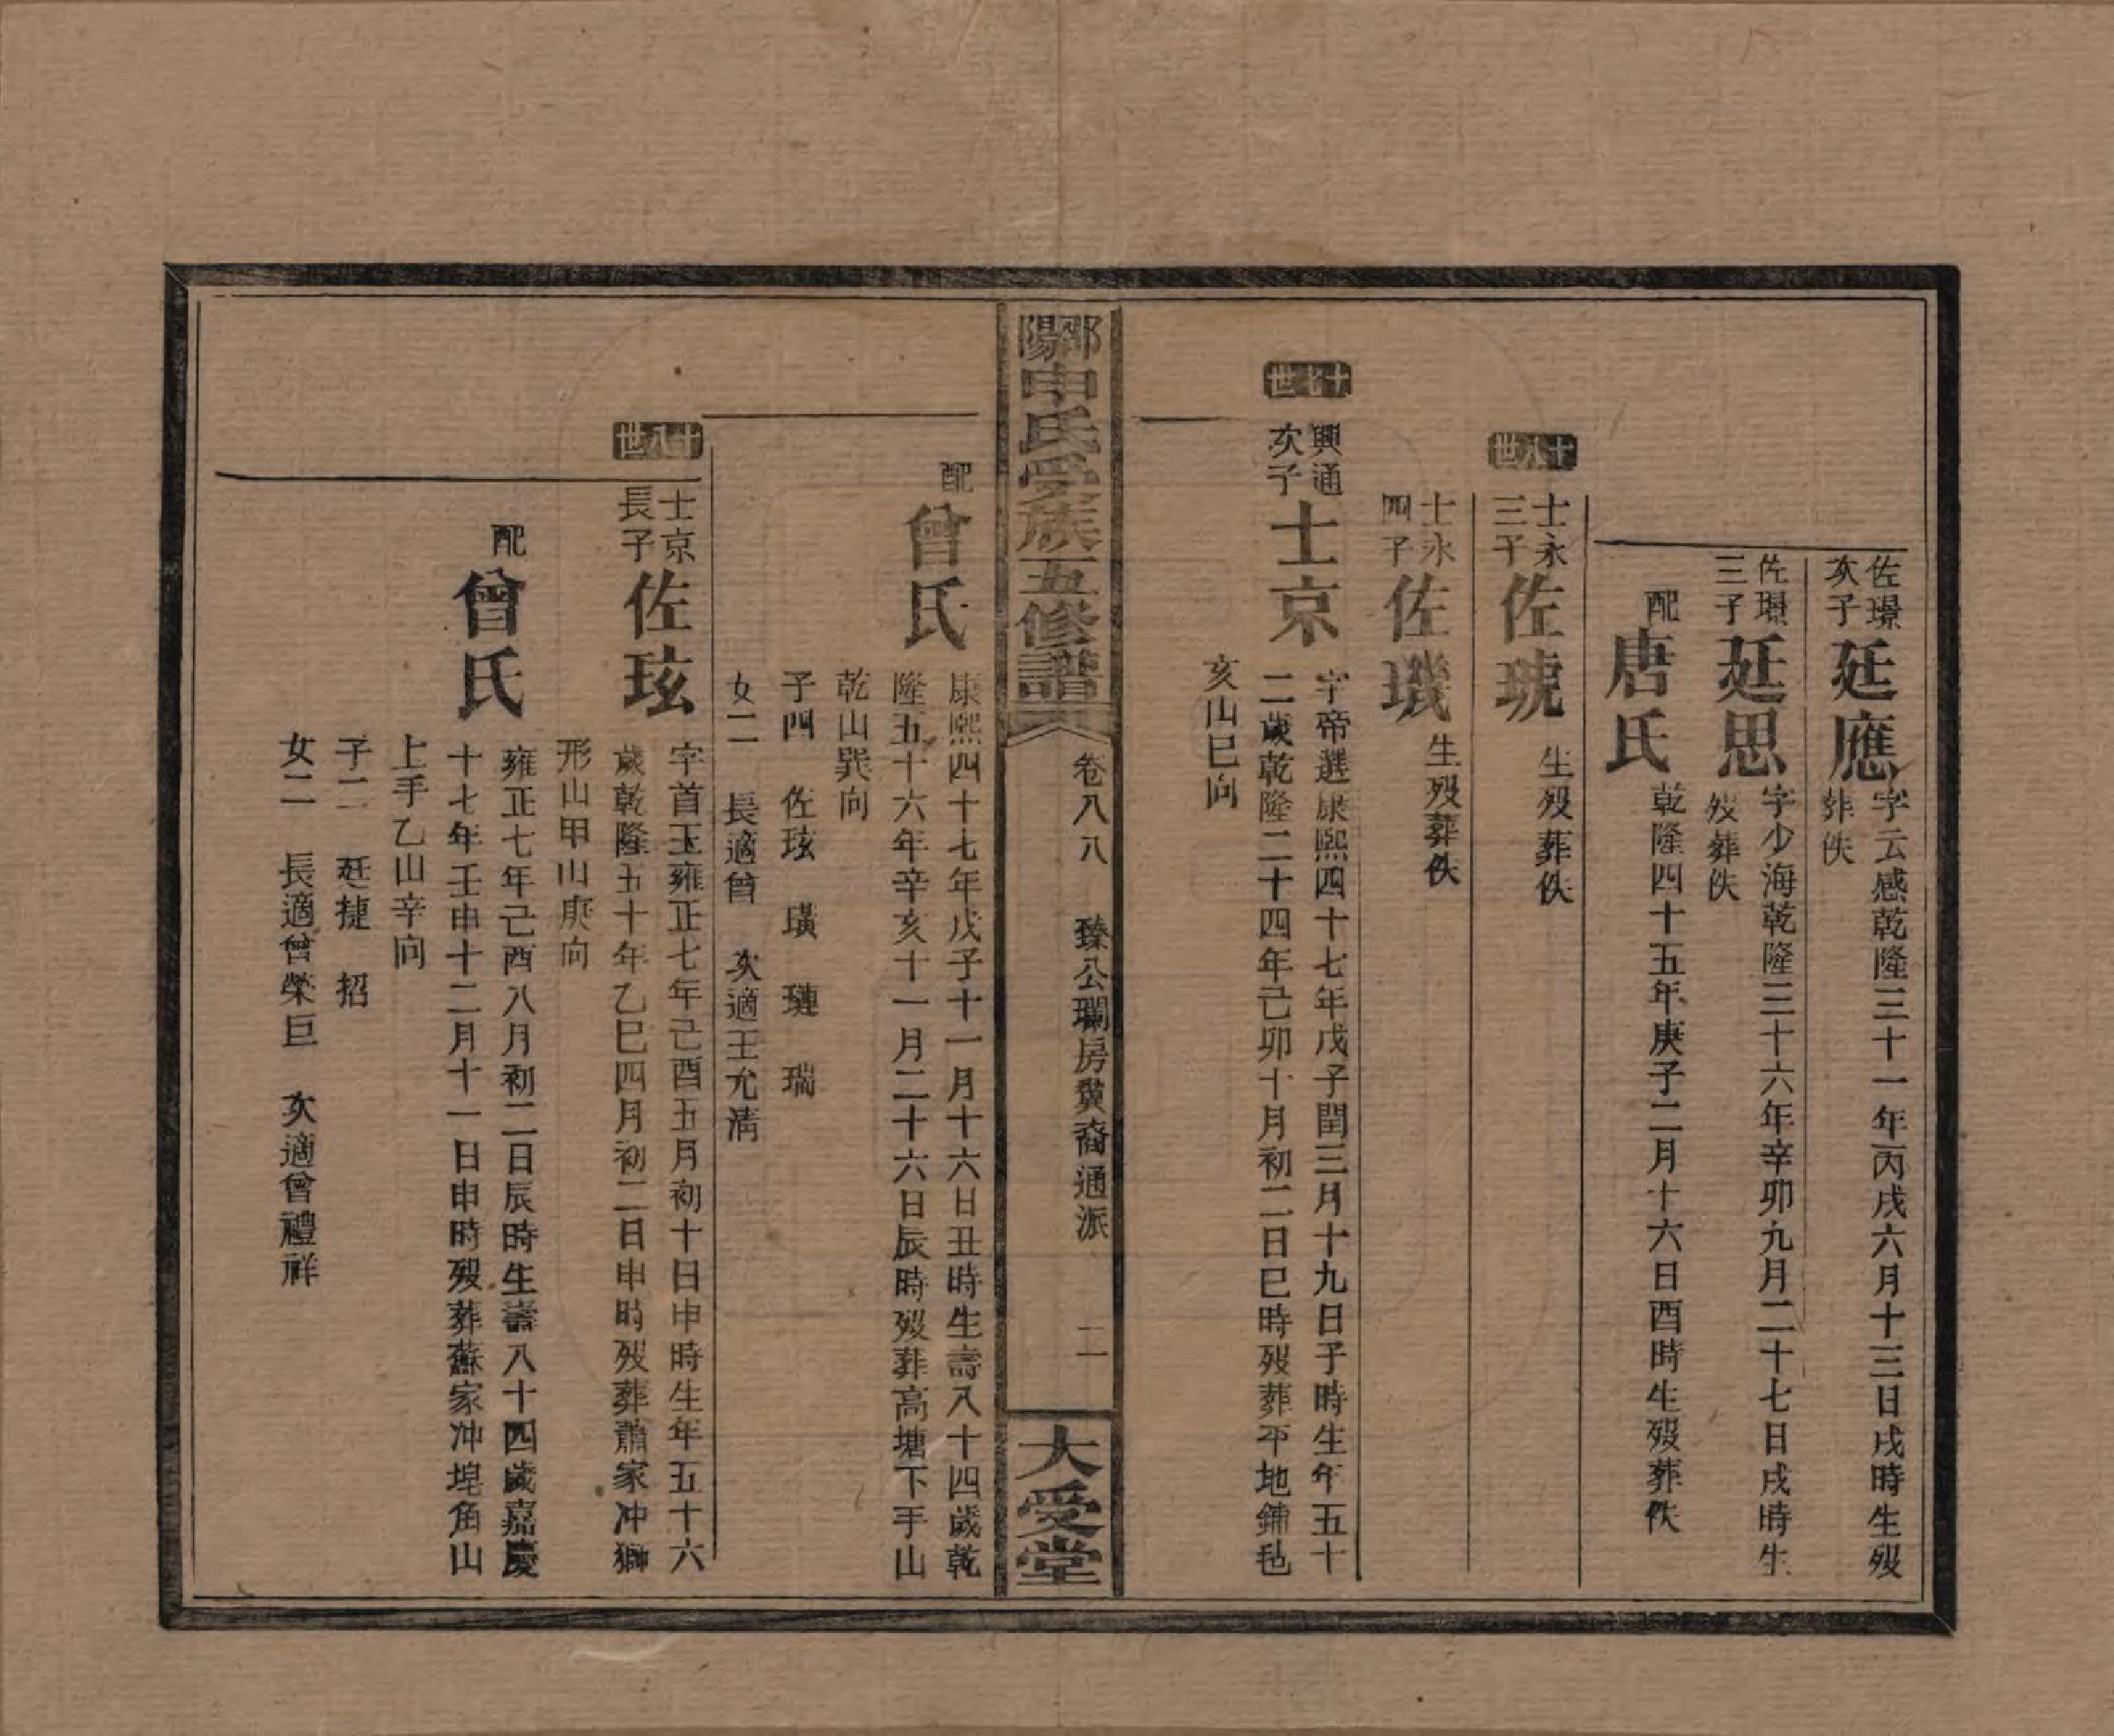 佐璟次子
廷應
字云感乾隆三十一年丙戌六月十三日戌時生歿
葬佚
佐璟三子
廷思
字少海乾隆三十六年辛卯九月二十七日戌時生
歿葬佚
配
唐氏
乾隆四十五年庚子二月十六日酉時生歿葬佚
十八世
士永三子
佐琥
生歿葬佚
士永四子
佐璣
生歿葬佚
十七世
興通次子
士京
字帝選康熙四十七年戊子閏三月十九日子時生年五十
二歲乾隆二十四年己卯十月初二日巳時歿葬平地鋪毡
亥山巳向
邵陽申氏受族五修譜
卷八八
臻公瓓房翼裔通派
二
大受堂
配
曾氏
康熙四十七年戊子十一月十六日丑時生壽八十四歲乾
隆五十六年辛亥十一月二十六日辰時歿葬高塘下手山
乾山巽向
子四 佐玹 璜 璉 瑞
女二 長適曾 次適王允清
十八世
士京長子
佐玹
字首玉雍正七年己酉五月初十日申時生年五十六
歲乾隆五十年乙巳四月初二日申時歿葬蕭家冲獅
形山甲山庚向
配
曾氏
雍正七年己酉八月初二日辰時生壽八十四歲嘉慶
十七年壬申十二月十一日申時歿葬蘇家冲埠角山
上手乙山辛向
子二 廷捷 招
女二 長適曾榮巨 次適曾禮祥